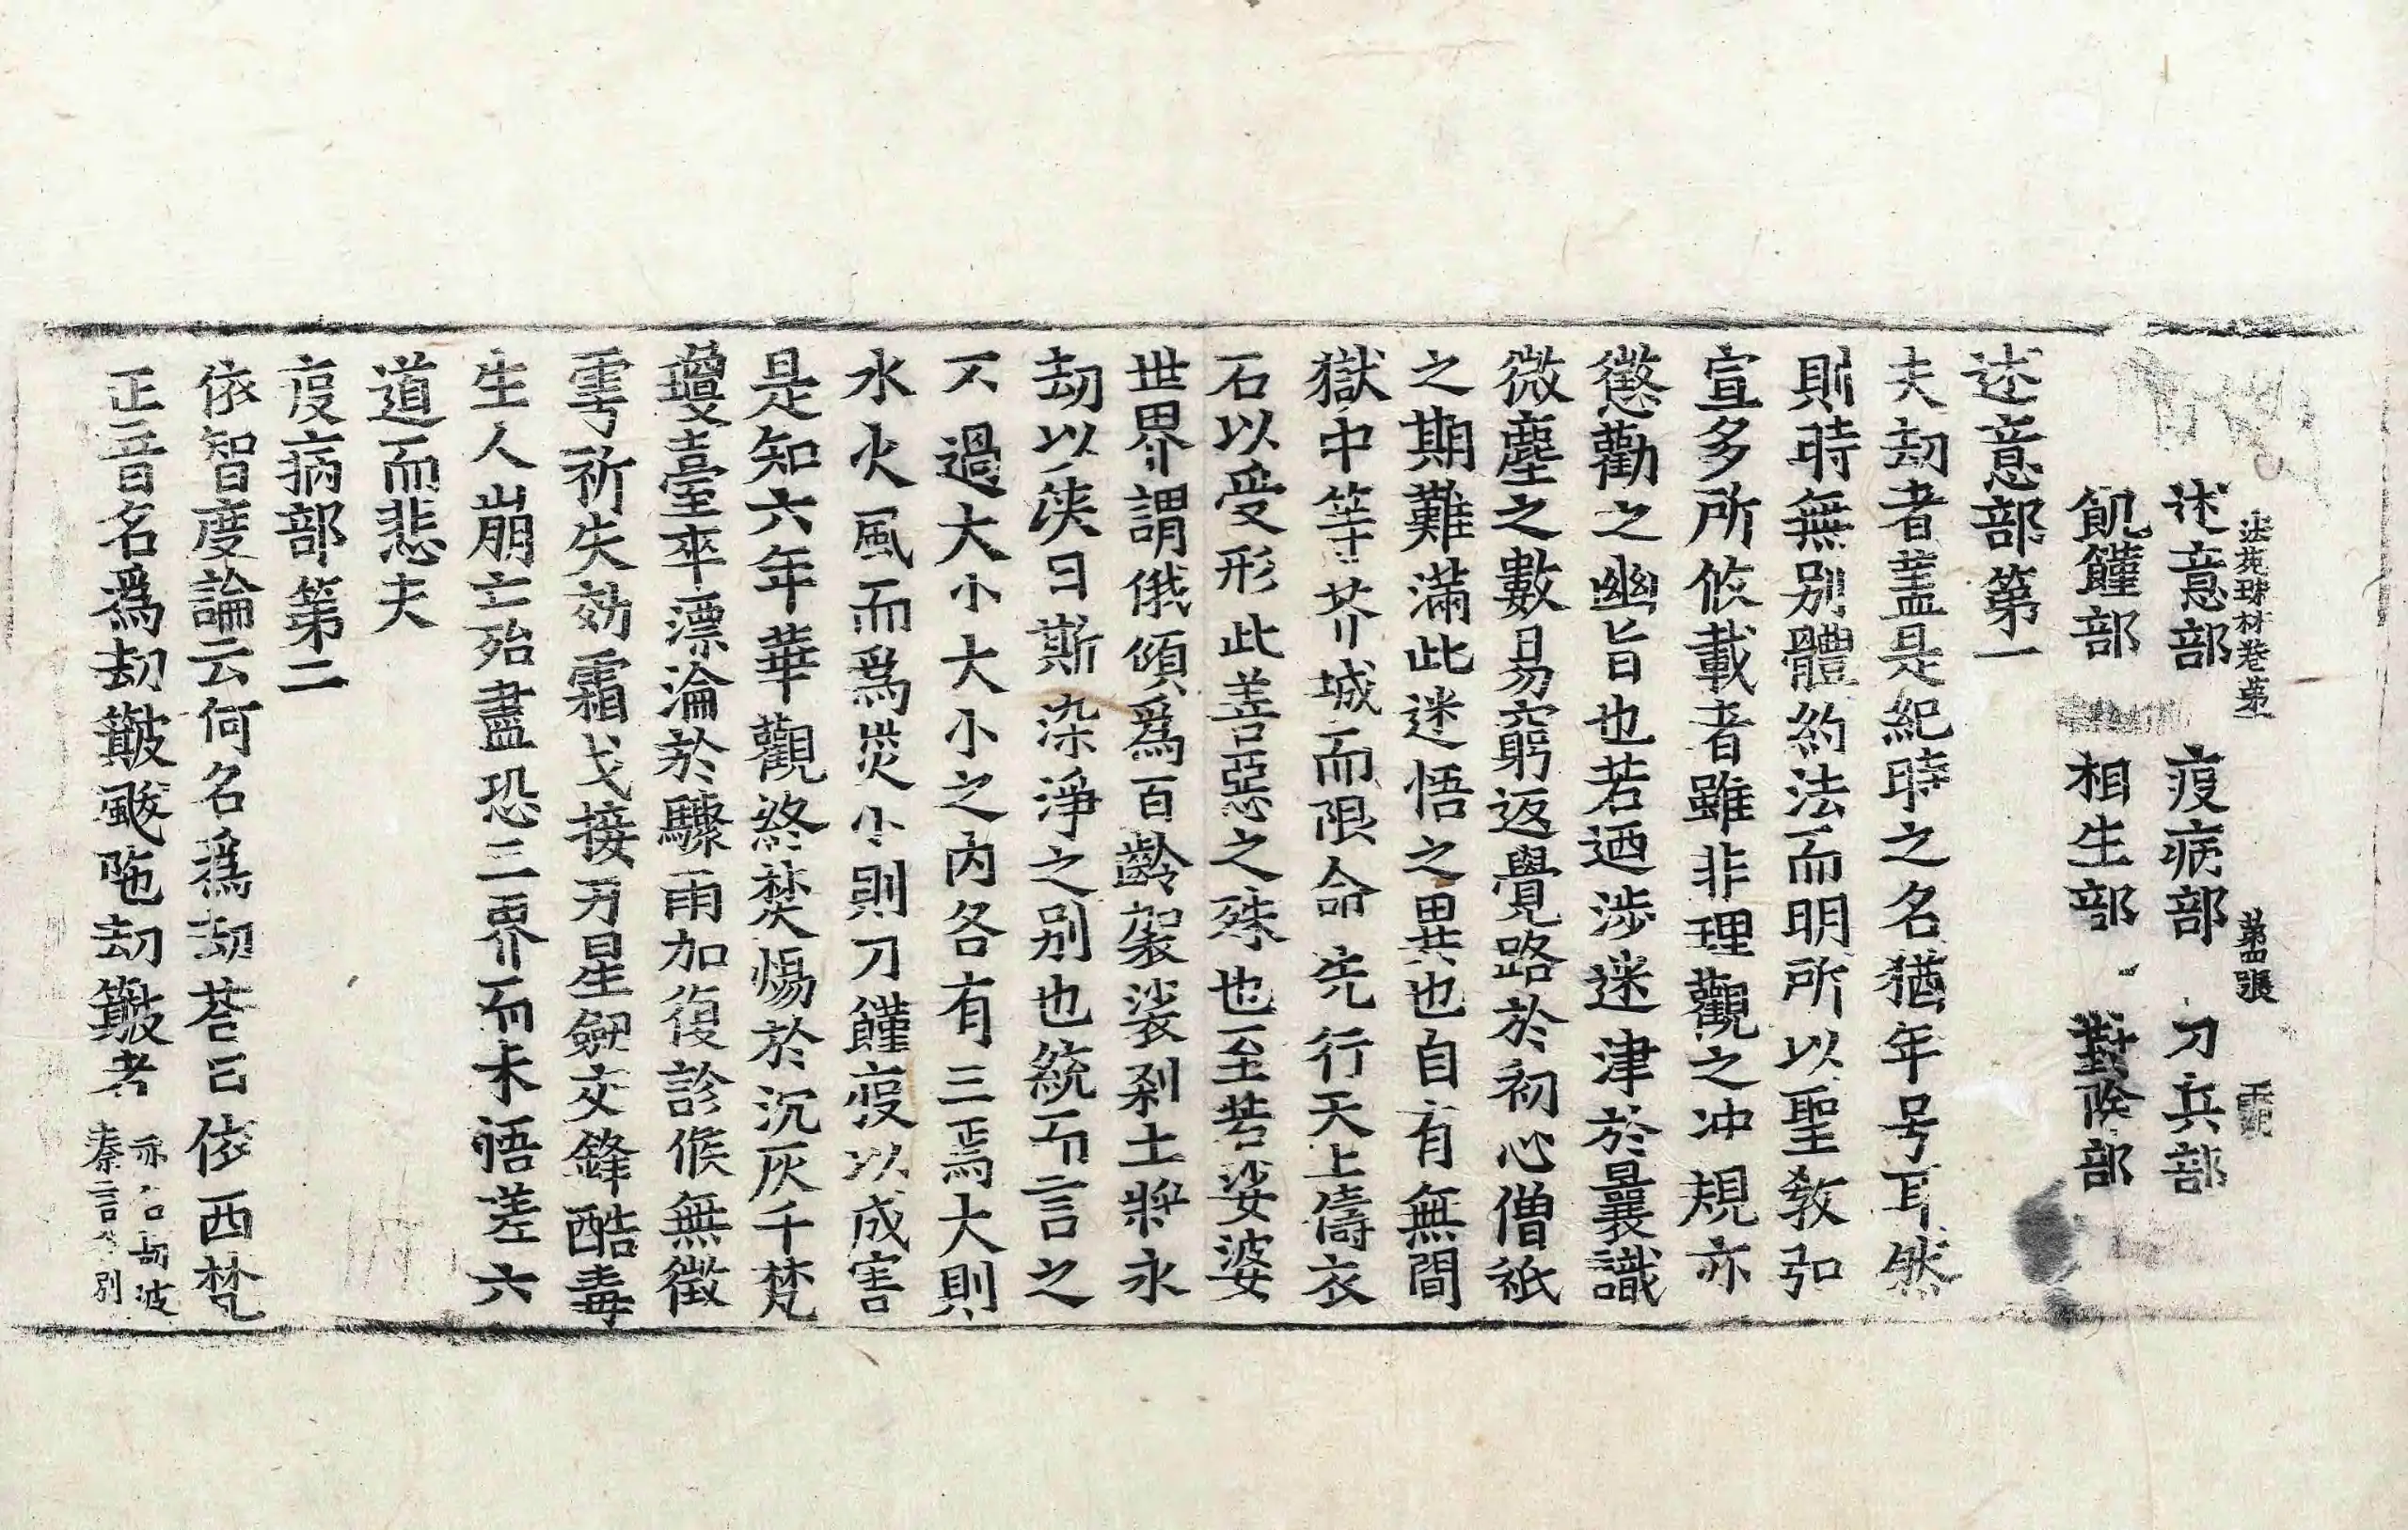 法苑珠林卷第一 第四張
述意部 疫病部 刀兵部
飢饉部 相生部 對除部
述意部第一
夫劫者蓋是紀時之名猶年号耳然
則時無別體約法而明所以聖教弘
宣多所攸載者雖非理觀之冲規亦
懲勸之幽旨也若迺涉迷津於曩識
微塵之數易窮返覺路於初心僧祇
之期難滿此迷悟之異也自有無間
獄中等芥城而限命兜行天上儔衣
石以受形此善惡之殊也至若娑婆
世界謂俄傾爲百齡袈裟剎土將永
劫以浹日斯染淨之別也統而言之
不過大小大小之內各有三焉大則
水火風而爲災小則刀饉疫以成害
是知六年華觀終焚煬於沉灰千梵
瓊臺卒漂淪於驟雨加復診候無徵
雩祈失効霜戈接刃星劒交鋒酷毒
生人崩亡殆盡恐三界而未悟差六
道而悲夫
疫病部第二
依智度論云何名爲劫荅曰依西梵
正音名爲劫簸颰陁劫簸者 亦名劫波 秦言分別